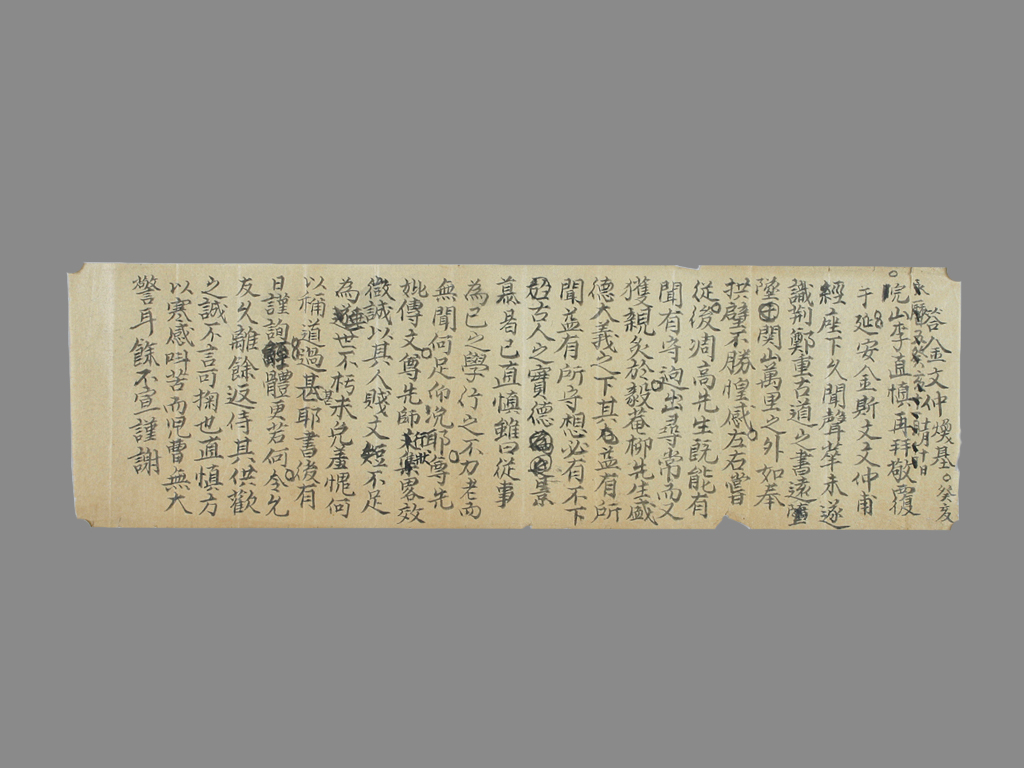 答金文仲煥基 癸亥
永曆
完山李直愼再拜敬覆
于延安金斯文文仲甫
經座下久聞聲華未遂
識荊鄭重古道之書遠
墜田關山萬里之外如奉
拱璧不勝惶感左右嘗
從浚凋高先生旣能有
聞有守逈出尋常而又
獲親炙於毅菴柳先生盛
德大義之下其尤益有所
聞益有所守想必有不下
於古人之實德
慕曷已直愼雖曰從事
為己之學行之不力老而
無聞何足仰況耶專先
妣傳文尊先師畧效
微誠以其人賤文短不足
為世不朽未免虛愧何
以稱道過甚耶書後有
日謹詢體更若何令允
友久離餘返侍其供歡
之誠不言可掬也直愼方
以寒感呌苦而児曹無大
警耳餘不宣謹謝